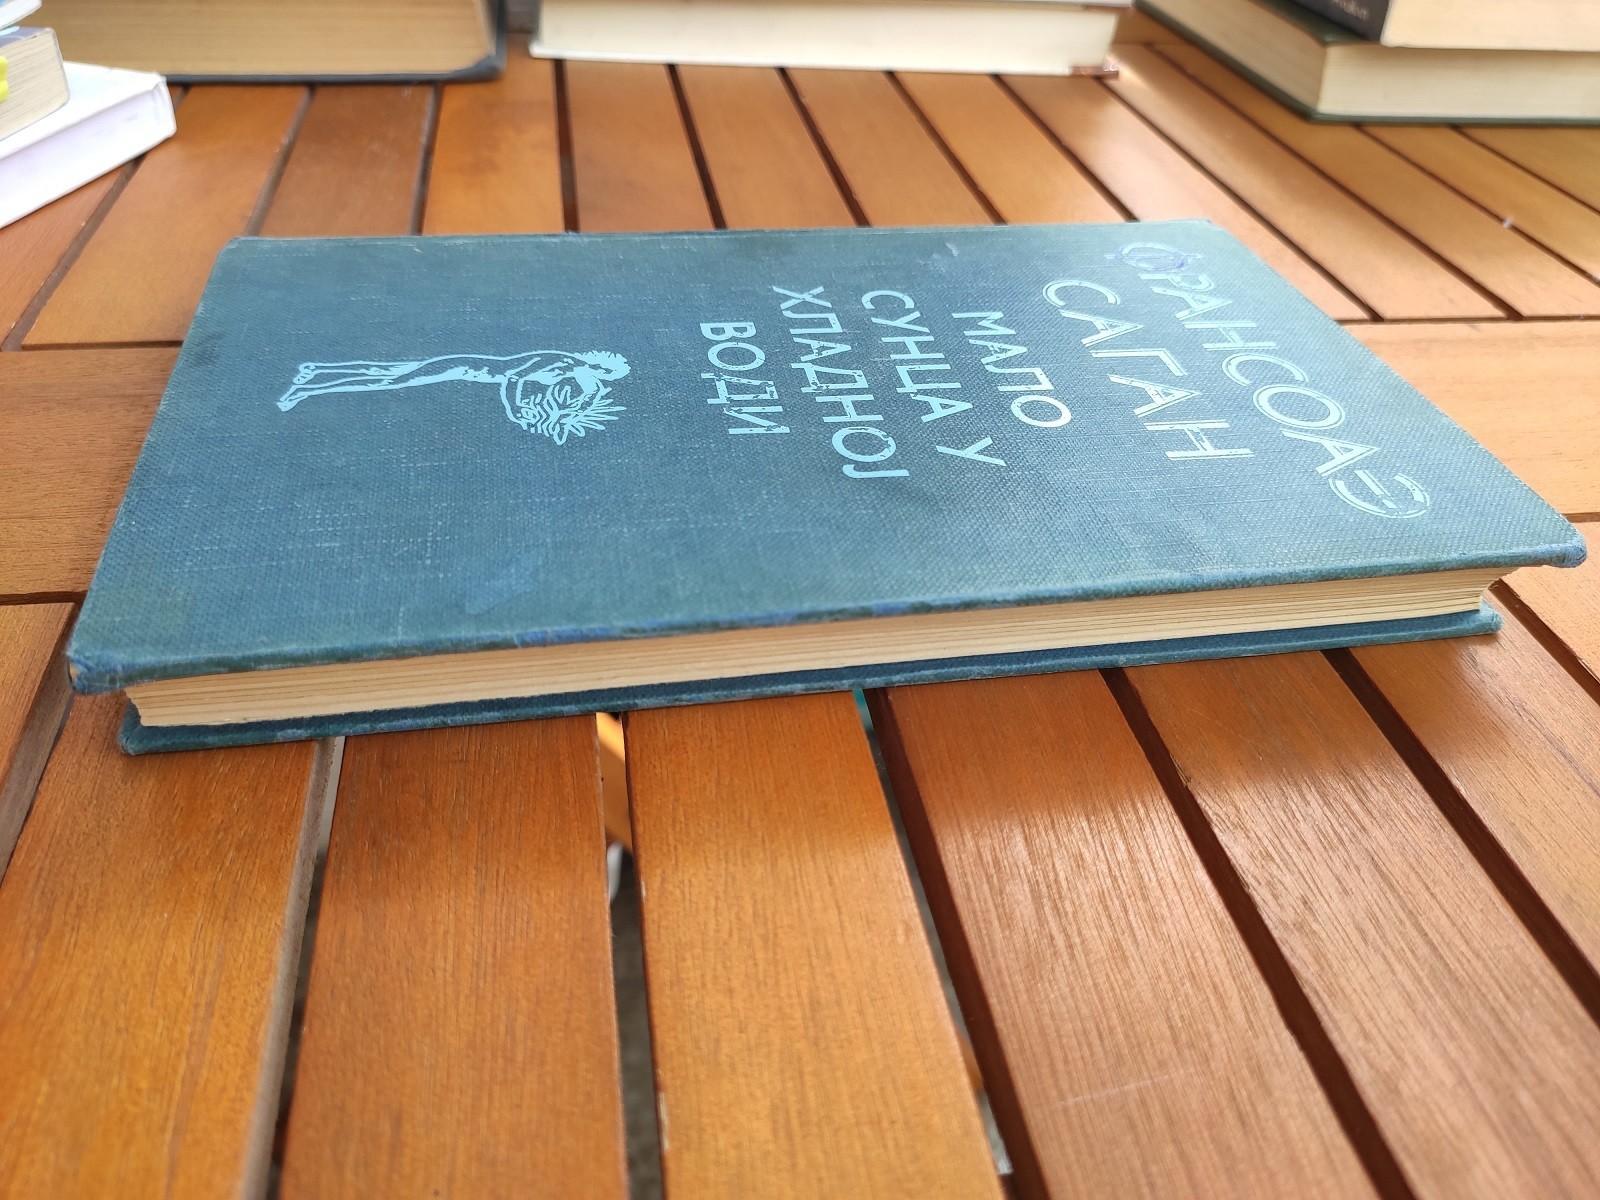 ФРАНСОАЗ
САГАН
МАЛО
СУНЦА У
ХЛАДНОЈ
ВОДИ